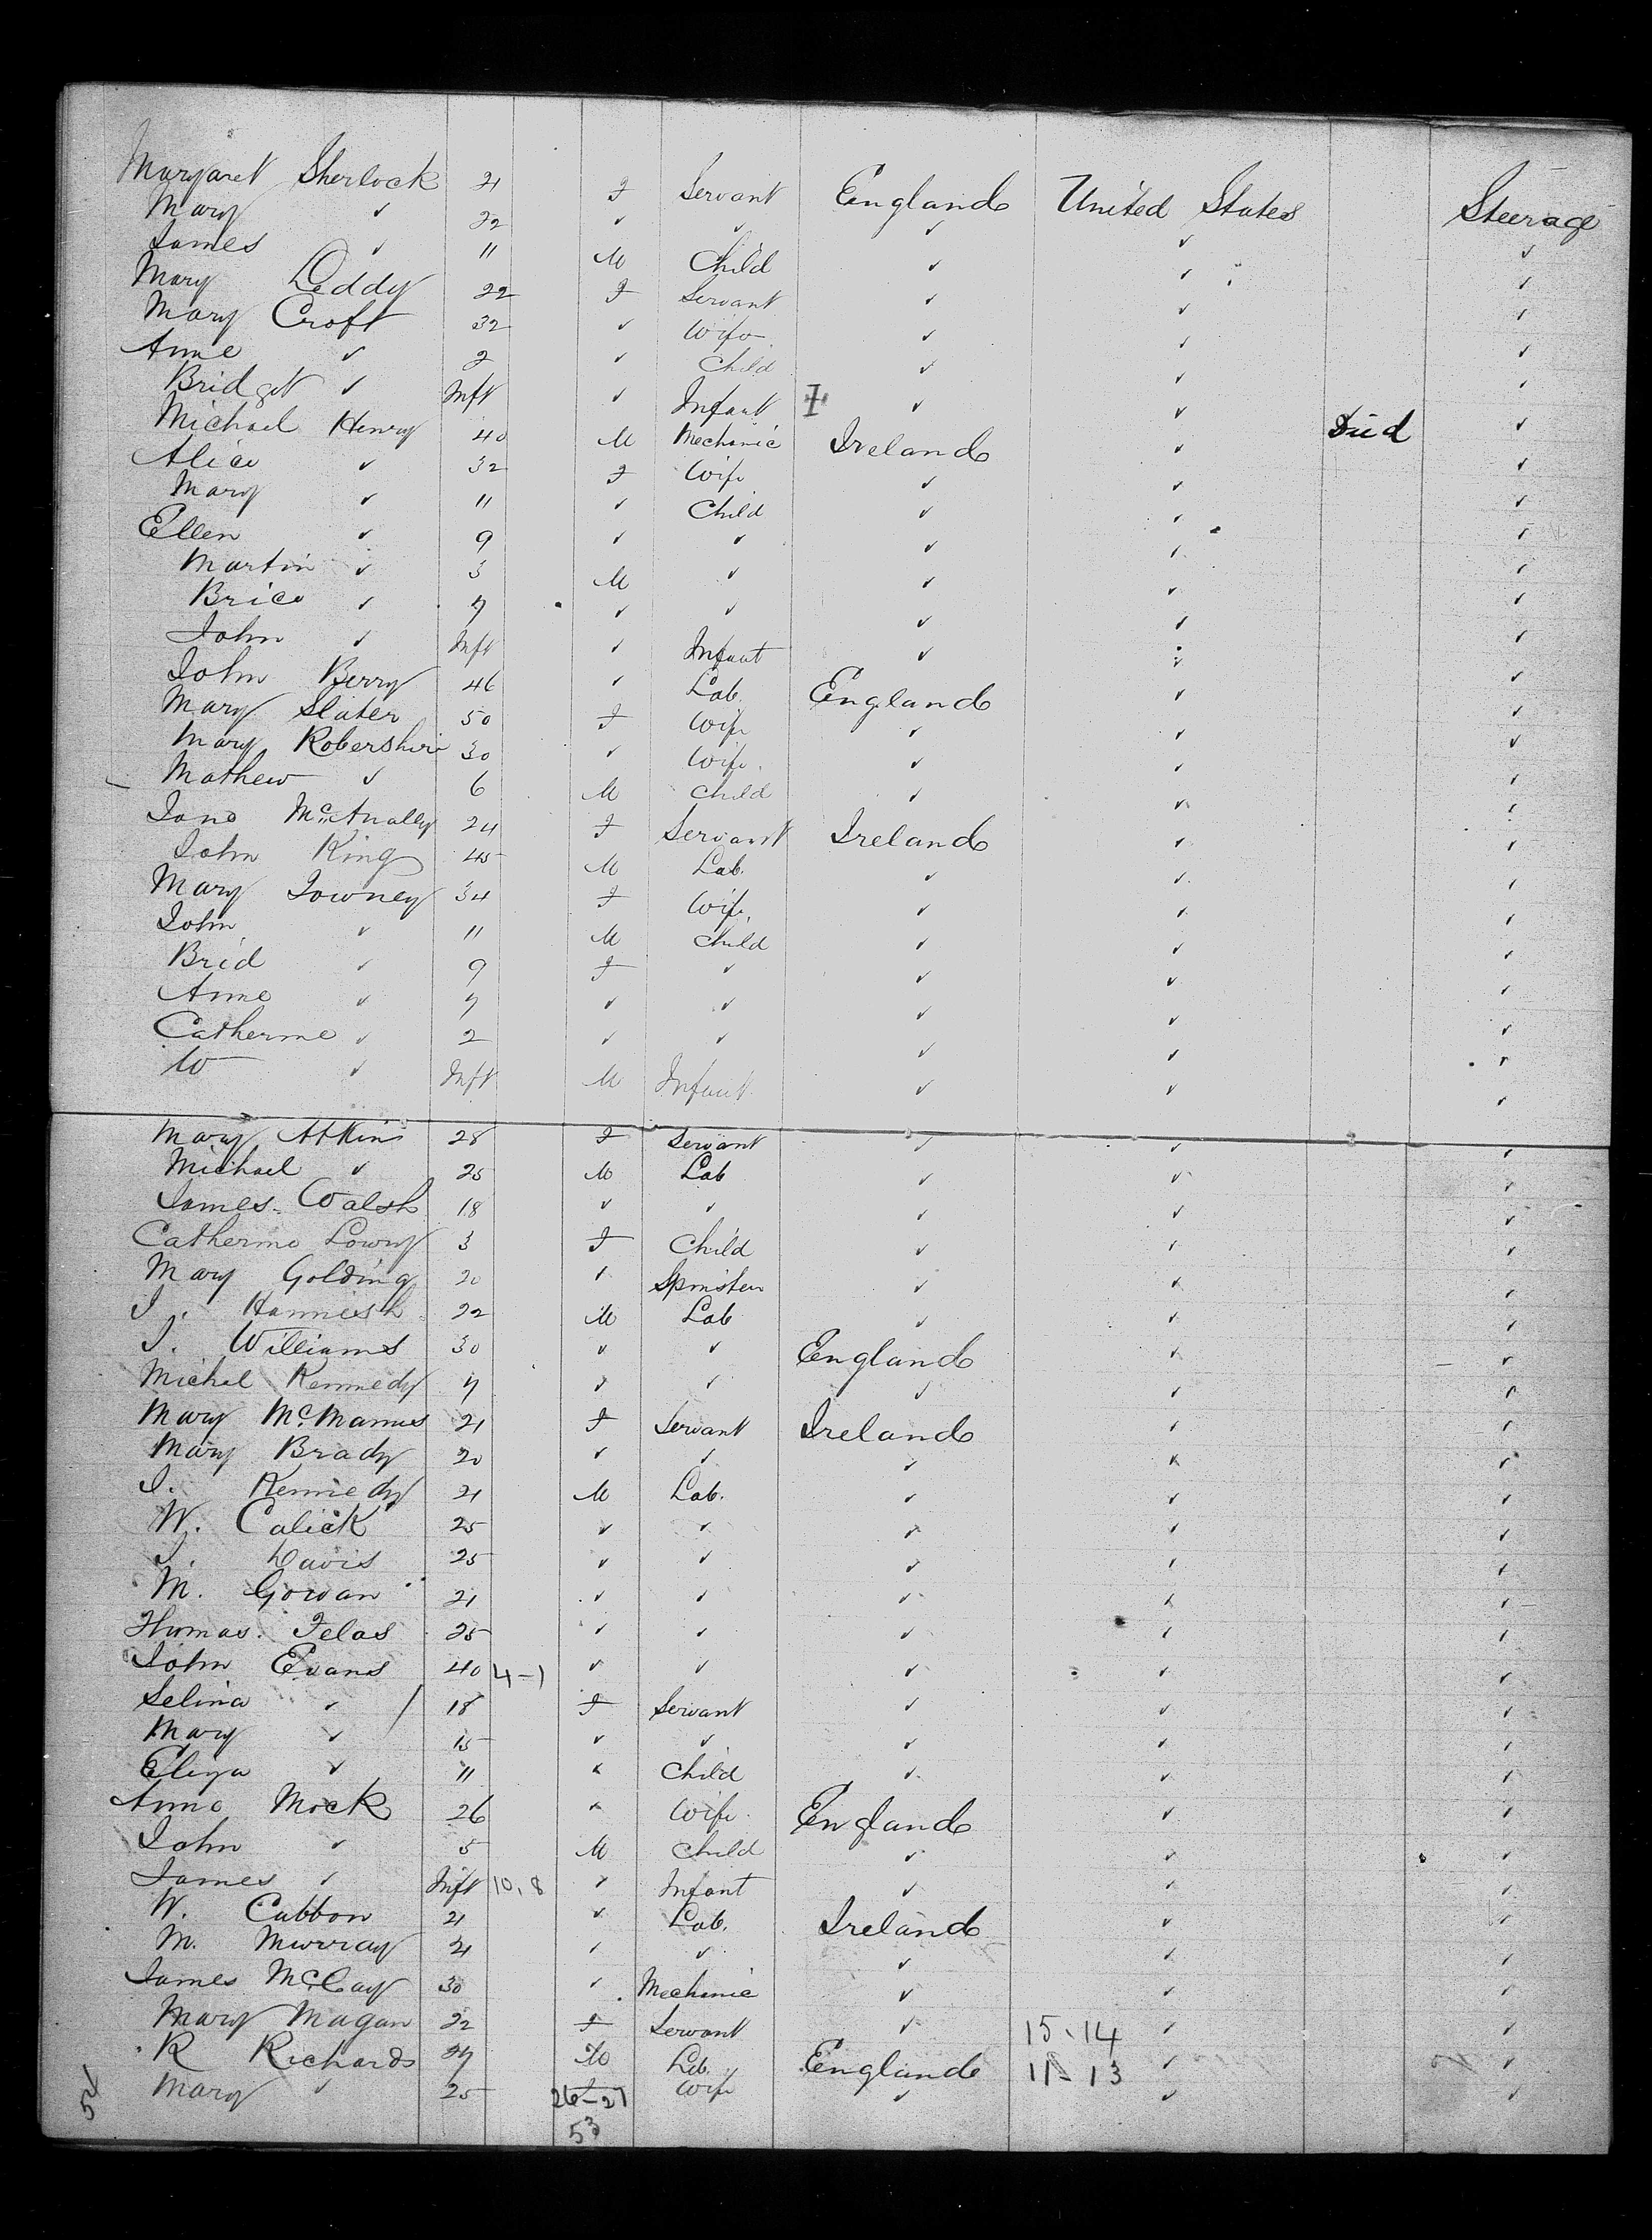 Margaret Sherlock 21 F Servant England United States Steerage
Mary ✓ 22 ✓ ✓ ✓ ✓ ✓
James ✓ 11 M Child ✓ ✓ ✓
Mary Leddy 22 F Servant ✓ ✓ ✓
Mary Croft 32 ✓ Wife ✓ ✓ ✓
Anne ✓ 2 ✓ Child ✓ ✓ ✓
Bridget ✓ Inft ✓ Infant ✓ ✓ Died ✓
Michael Henry 40 M Mechanic Ireland ✓ ✓
Alice ✓ 32 F Wife ✓ ✓ ✓
Mary ✓ 11 ✓ Child ✓ ✓ ✓
Ellen ✓ 9 ✓ ✓ ✓ ✓ ✓
Martin ✓ 3 M ✓ ✓ ✓ ✓
Brice ✓ 7 ✓ ✓ ✓ ✓ ✓
John ✓ Inft ✓ Infant ✓ ✓ ✓
John Berry 46 ✓ Lab. England ✓ ✓
Mary Slater 50 F Wife ✓ ✓ ✓
Mary 30 ✓ Wife ✓ ✓ ✓
Mathew ✓ 6 M Child ✓ ✓ ✓
Jane McAnally 24 F Servant Ireland ✓ ✓
John King 45 M Lab. ✓ ✓ ✓
Mary Towney 34 F Wife ✓ ✓ ✓
John ✓ 11 M Child ✓ ✓ ✓
Brid ✓ 9 F ✓ ✓ ✓ ✓
Anne ✓ 7 ✓ ✓ ✓ ✓ ✓
Catherine ✓ 2 ✓ ✓ ✓ ✓ ✓
W ✓ Inft M Infant ✓ ✓ ✓
Mary Atkins 28 F Servant ✓ ✓ ✓
Michael ✓ 25 M Lab ✓ ✓ ✓
James Walsh 18 ✓ ✓ ✓ ✓ ✓
Catherine Lowry 3 F Child ✓ ✓ ✓
Mary Golding 20 ✓ Spinster ✓ ✓ ✓
J. 22 M Lab ✓ ✓ ✓
J. Williams 30 ✓ ✓ England ✓ ✓
Michel Kennedy 7 ✓ ✓ ✓ ✓ ✓
Mary McManus 21 F Servant Ireland ✓ ✓
Mary Brady 20 ✓ ✓ ✓ ✓ ✓
J. Kennedy 21 M Lab. ✓ ✓ ✓
W. Calick 25 ✓ ✓ ✓ ✓ ✓
J. Davis 25 ✓ ✓ ✓ ✓ ✓
M. Gowan 21 ✓ ✓ ✓ ✓ ✓
Thomas Felas 25 ✓ ✓ ✓ ✓ ✓
John Evans 40 4-1 ✓ ✓ ✓ ✓ ✓
Selina ✓ / 18 F Servant ✓ ✓ ✓
Mary ✓ 15 ✓ ✓ ✓ ✓ ✓
Eliza ✓ 11 ✓ Child ✓ ✓ ✓
Anne Mock 26 ✓ Wife England ✓ ✓
John ✓ 5 M Child ✓ ✓ ✓
James ✓ Inft 10,8 ✓ Infant ✓ ✓ ✓
W. Cubbon 21 ✓ Lab. Ireland ✓ ✓
M. Murray 21 ✓ ✓ ✓ ✓ ✓
James McCay 30 ✓ Mechanic ✓ ✓ ✓
Mary Magan 22 F Servant ✓ 15.14 ✓ ✓
R Richards 27 M Lab. England 11-13 ✓ ✓
Mary ✓ 25 26-27 Wife ✓ ✓ ✓
53